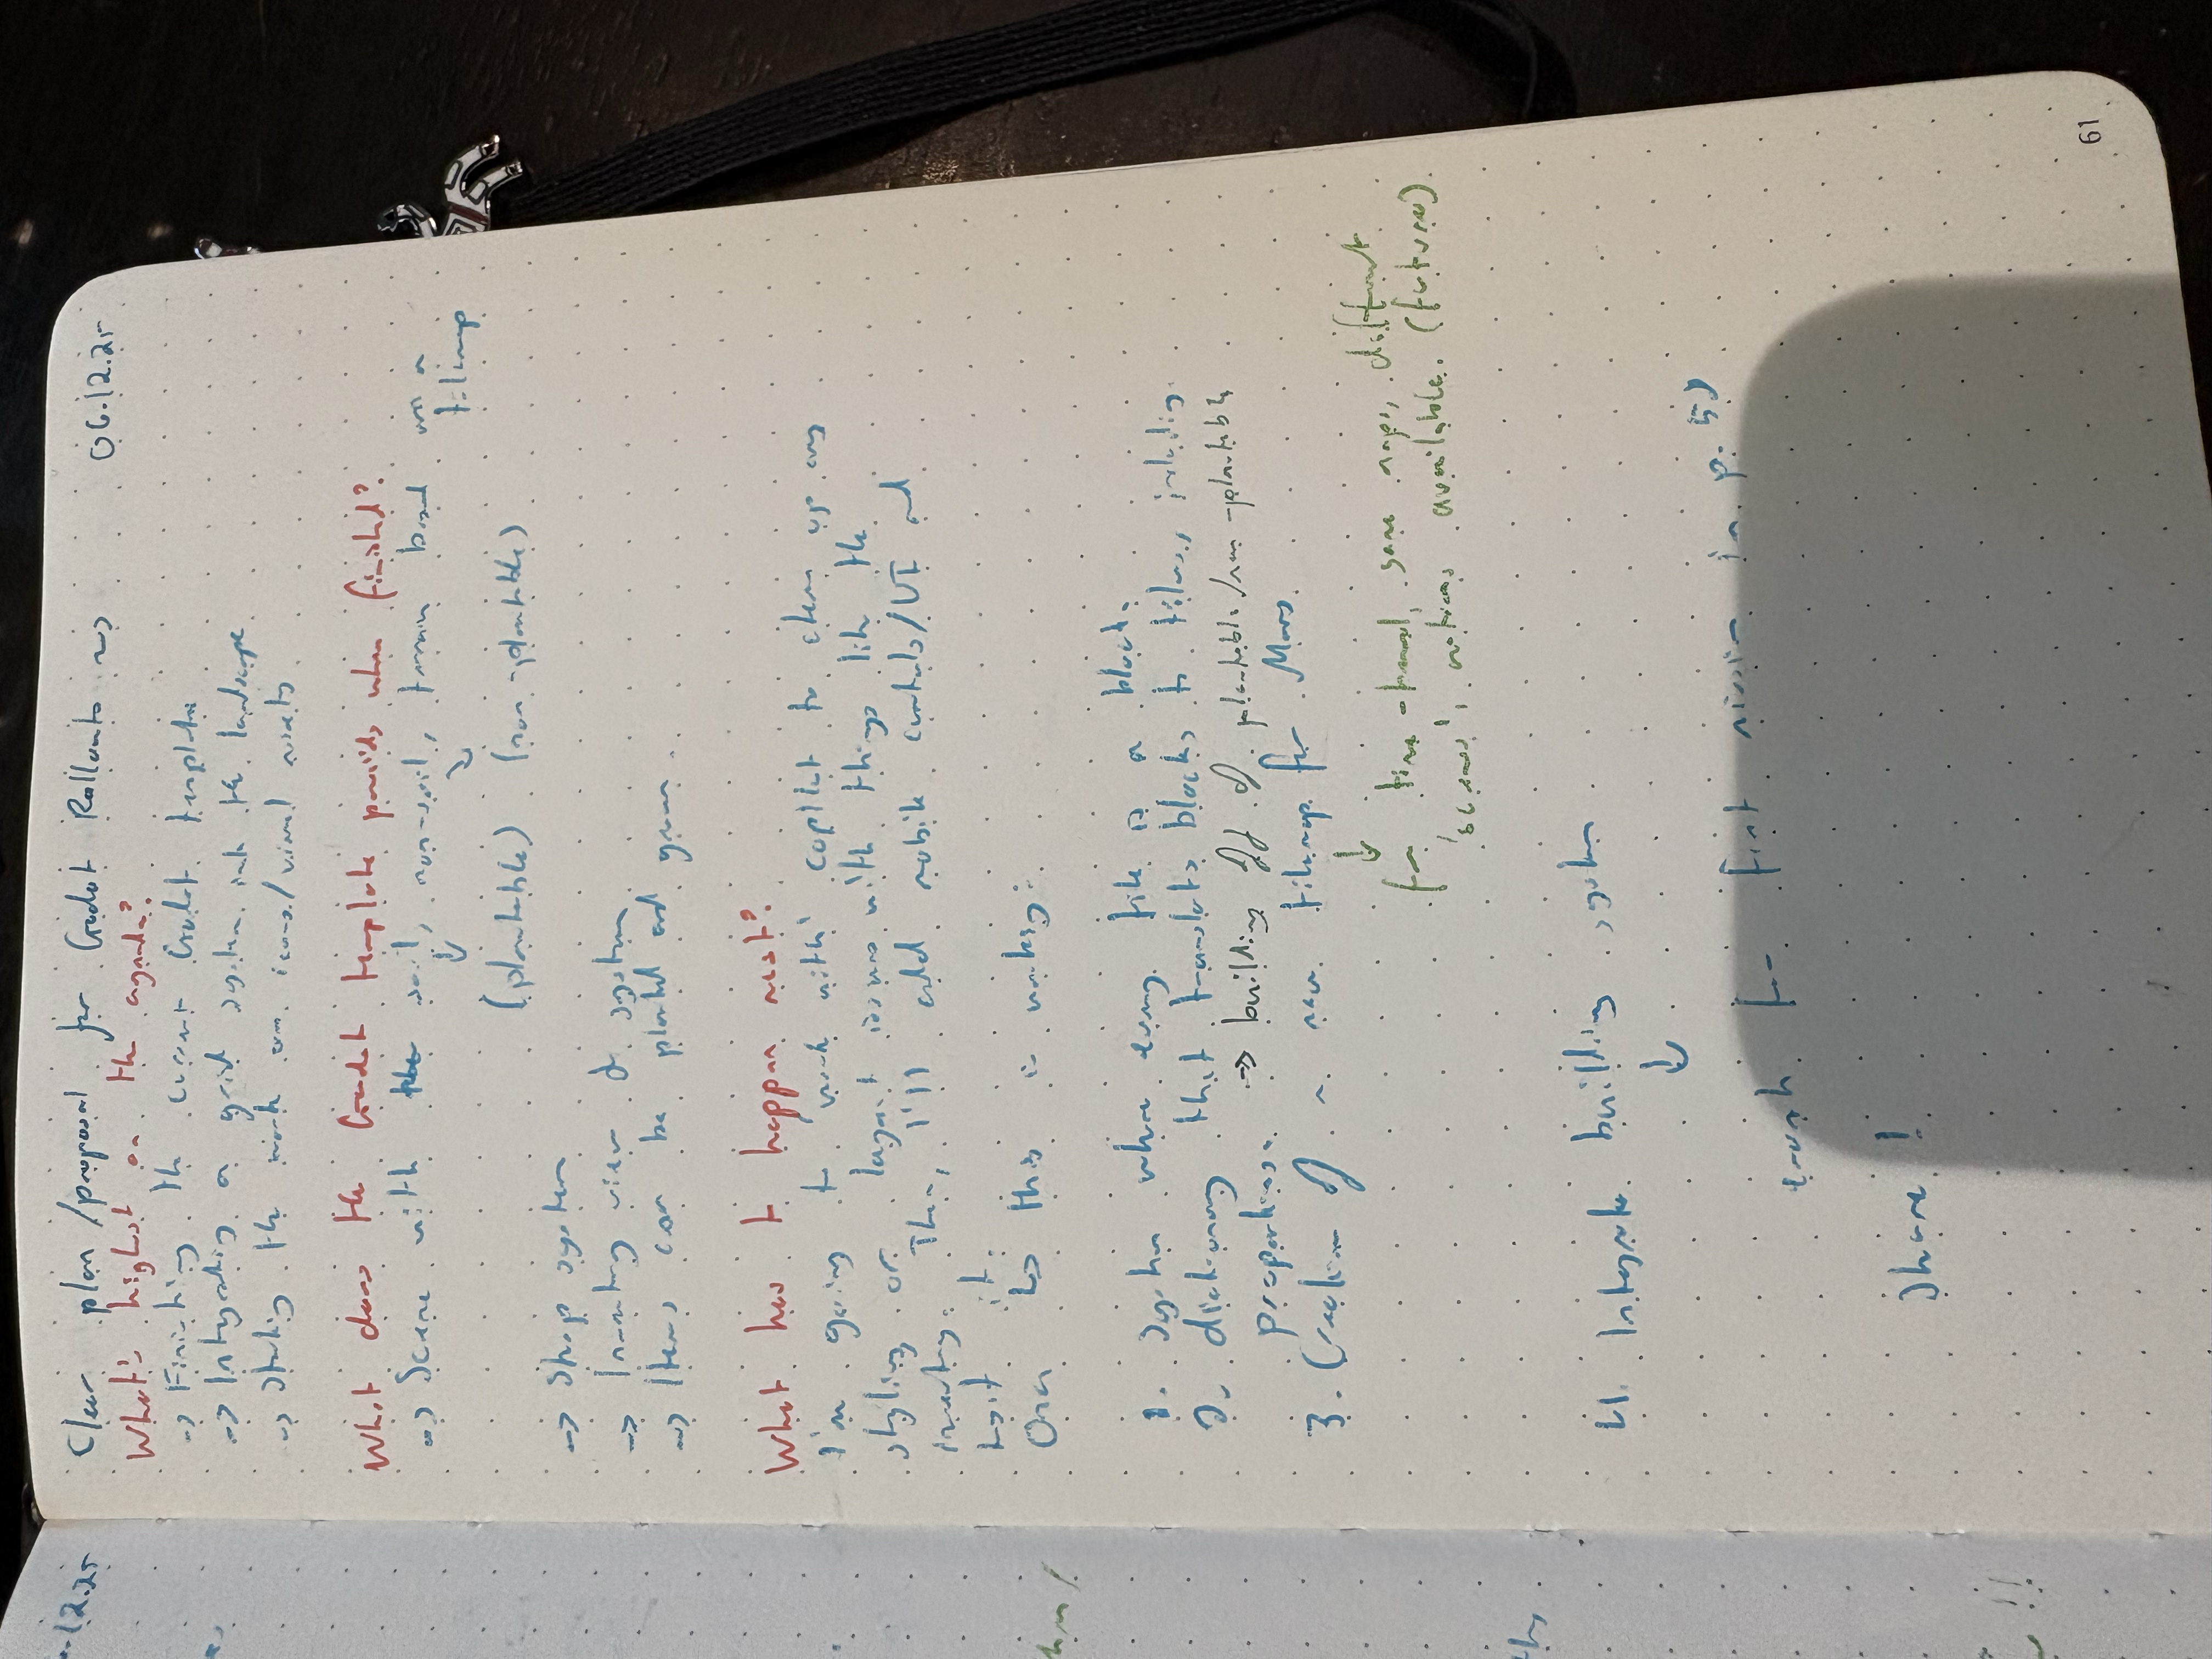 Clear plan/proposal for Godot Rollouts => 06.12.25
What's highest on the agenda?
=> Finishing the current Godot template
=> Integrating a grid system into the landscape
=> Starting the work on icons/visual assets
What does the Godot template provide when finished?
=> Scene with the soil, non-soil, terrain based on a tilemap
(plantable) (non-plantable)
=> Shop system
=> Inventory view & system
=> Items can be planted and grown.
What has to happen next?
I'm going to work with Copilot to clean up any
styling or layout issues with things like the
inventory. Then, I'll add mobile controls/UI and
test it.
Once this is working:
1. System where every tile is a block.
2. dictionary that translates blocks to tiles, including
properties. => building off of plantable/non-plantable
3. Creation of a new tilemap for Mars
for time-travel, same map, different
'ground' versions available. (futures)
4. Integrate building system
Enough for first mission in p. 5)
Share!
61
12.25